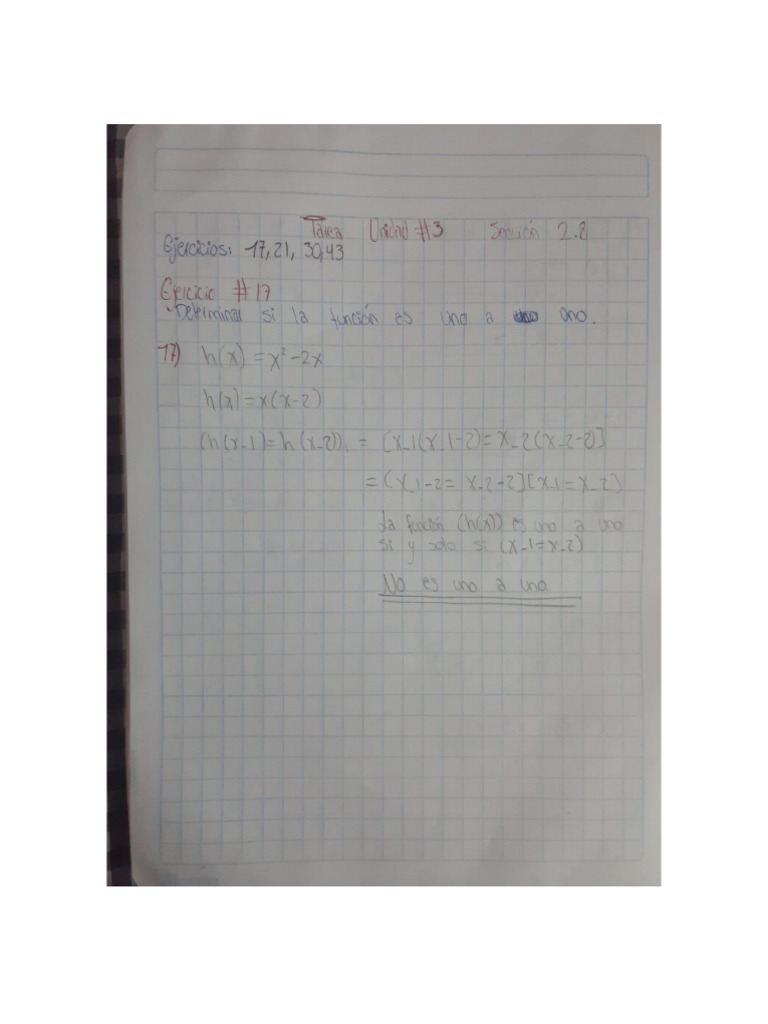 Tarea Unidad #3 Sección 2.8
Ejercicios: 17, 21, 30, 43
Ejercicio #17
Determinar si la función es uno a uno.
17) h(x) = x² - 2x
h(x) = x(x-2)
(h(x_1) = h(x_2)) = [x_1(x_1-2) = x_2(x_2-2)]
= (x_1-2 = x_2-2] [x_1 = x_2)
La función (h(x)) es uno a uno
si y solo si (x_1 = x_2)
No es uno a uno